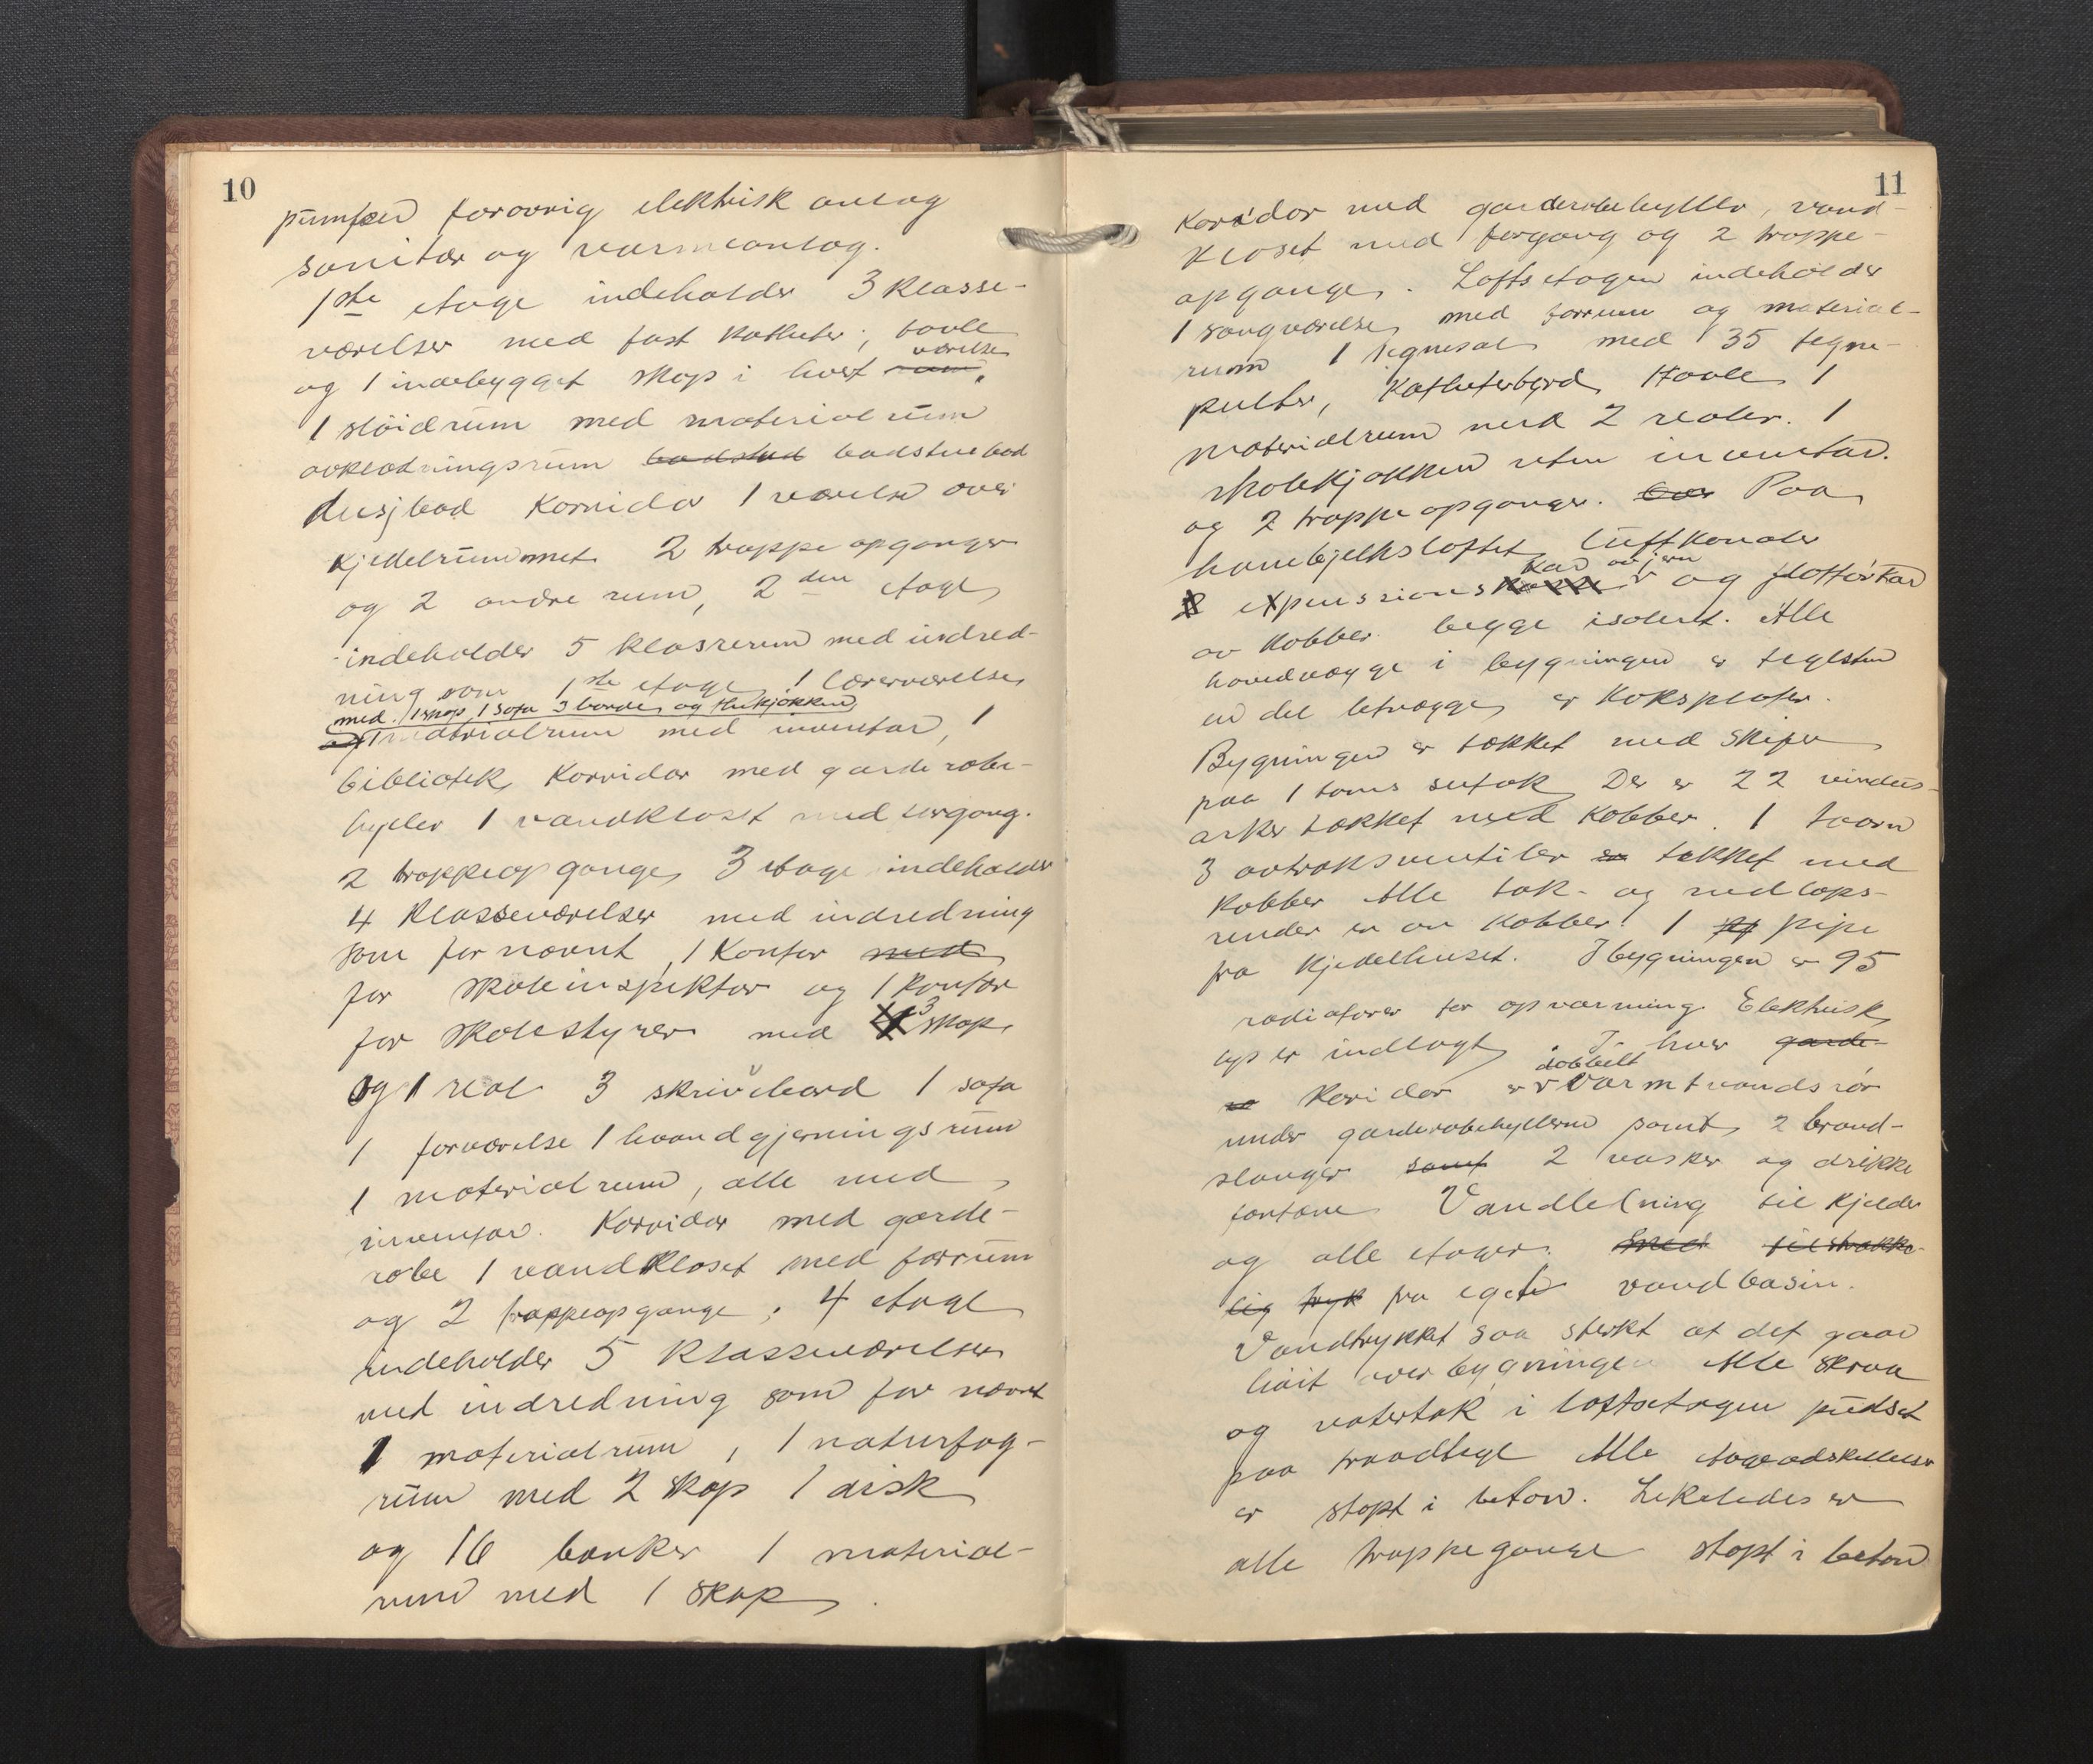 10
pumper forøvrig elektrisk anlæg
sanitær og varmeanlæg.
1ste etage indeholder 3 klasse-
værelser med fast katheter, tavle
værelse
og 1 indebygget skap i hvert rum.
1 sløidrum med materialrum
avklædningsrum badstud badstuebad
dusjbad Korridor 1 værelse over
kjedelrummet 2 trappeopganger
og 2 andre rum, 2den etage
indeholder 5 klasserum med indred-
ning som 1ste etage 1 lærerværelse
med 1 skap, 1 sofa 3 borde og thekjøkken
og 1 materialrum med inventar, 1
bibliotek, Korridor med garderobe-
hylder 1 vandkloset med forgang.
2 trappeopgange, 3 etage indeholder
4 klasseværelser med indredning
som før nævnt, 1 Kontor med
for skoleinspektør og 1 kontor
for skolestyrer med 3 skap,
og 1 reol 3 skrivebord 1 sofa
1 forværelse 1 haandgjerningsrum
1 materialrum, alle med
inventar. Korridor med garde-
robe 1 vandkloset med forrum
og 2 trappeopgange, 4 etage
indeholder 5 klasseværelser
med indredning som før nævnt
1 materialrum, 1 naturfag-
rum med 2 skap 1 disk
og 16 banker 1 material-
rum med 1 skap.
11
Koridor med garderobehylder, vand-
kloset med forgang og 2 trappe-
opgange. Loftsetagen indeholder
1 sangværelse, med forrum og material-
rum 1 tegnesal med 35 tegne-
pulter, Katheterbord, tavle, 1
materialrum med 2 reoler. 1
skolekjøkken uten inventar.
og 2 trappeopganger. Paa
hanebjelksloftet luftkanaler
kar av jern
expensions og flottørkar
av kobber begge isolert. Alle
hovedvægge i bygningen er teglsten
en del letvægge, er Koksplater.
Bygningen er tækket med skifer
paa 1 toms sutak Der er 22 vindus-
arker tækket med kobber. 1 taarn
3 avtræksventiler er tækket med
kobber Alle tak- og nedløps-
render er av kobber. 1 pipe
fra kjedelhuset. I bygningen er 95
radiatorer for opvarming. Elektrisk
lys er indlagt. I hver garde-
dobbelt
koridor er varmtvandsrør
under garderobehyllerne samt, 2 brand-
slanger samt 2 vasker og drikke
fontæne Vandledning til kjelder
og alle etager. med tilstrække-
lig tryk fra eget vandbasin.
Vandtrykket saa sterkt at det gaar
høit over bygningen Alle skraa
og vatertak i loftsetagen pudset
paa traadtegl Alle etageadskillelser
er støpt i beton. Likeledes er
alle trappegange støpt i beton